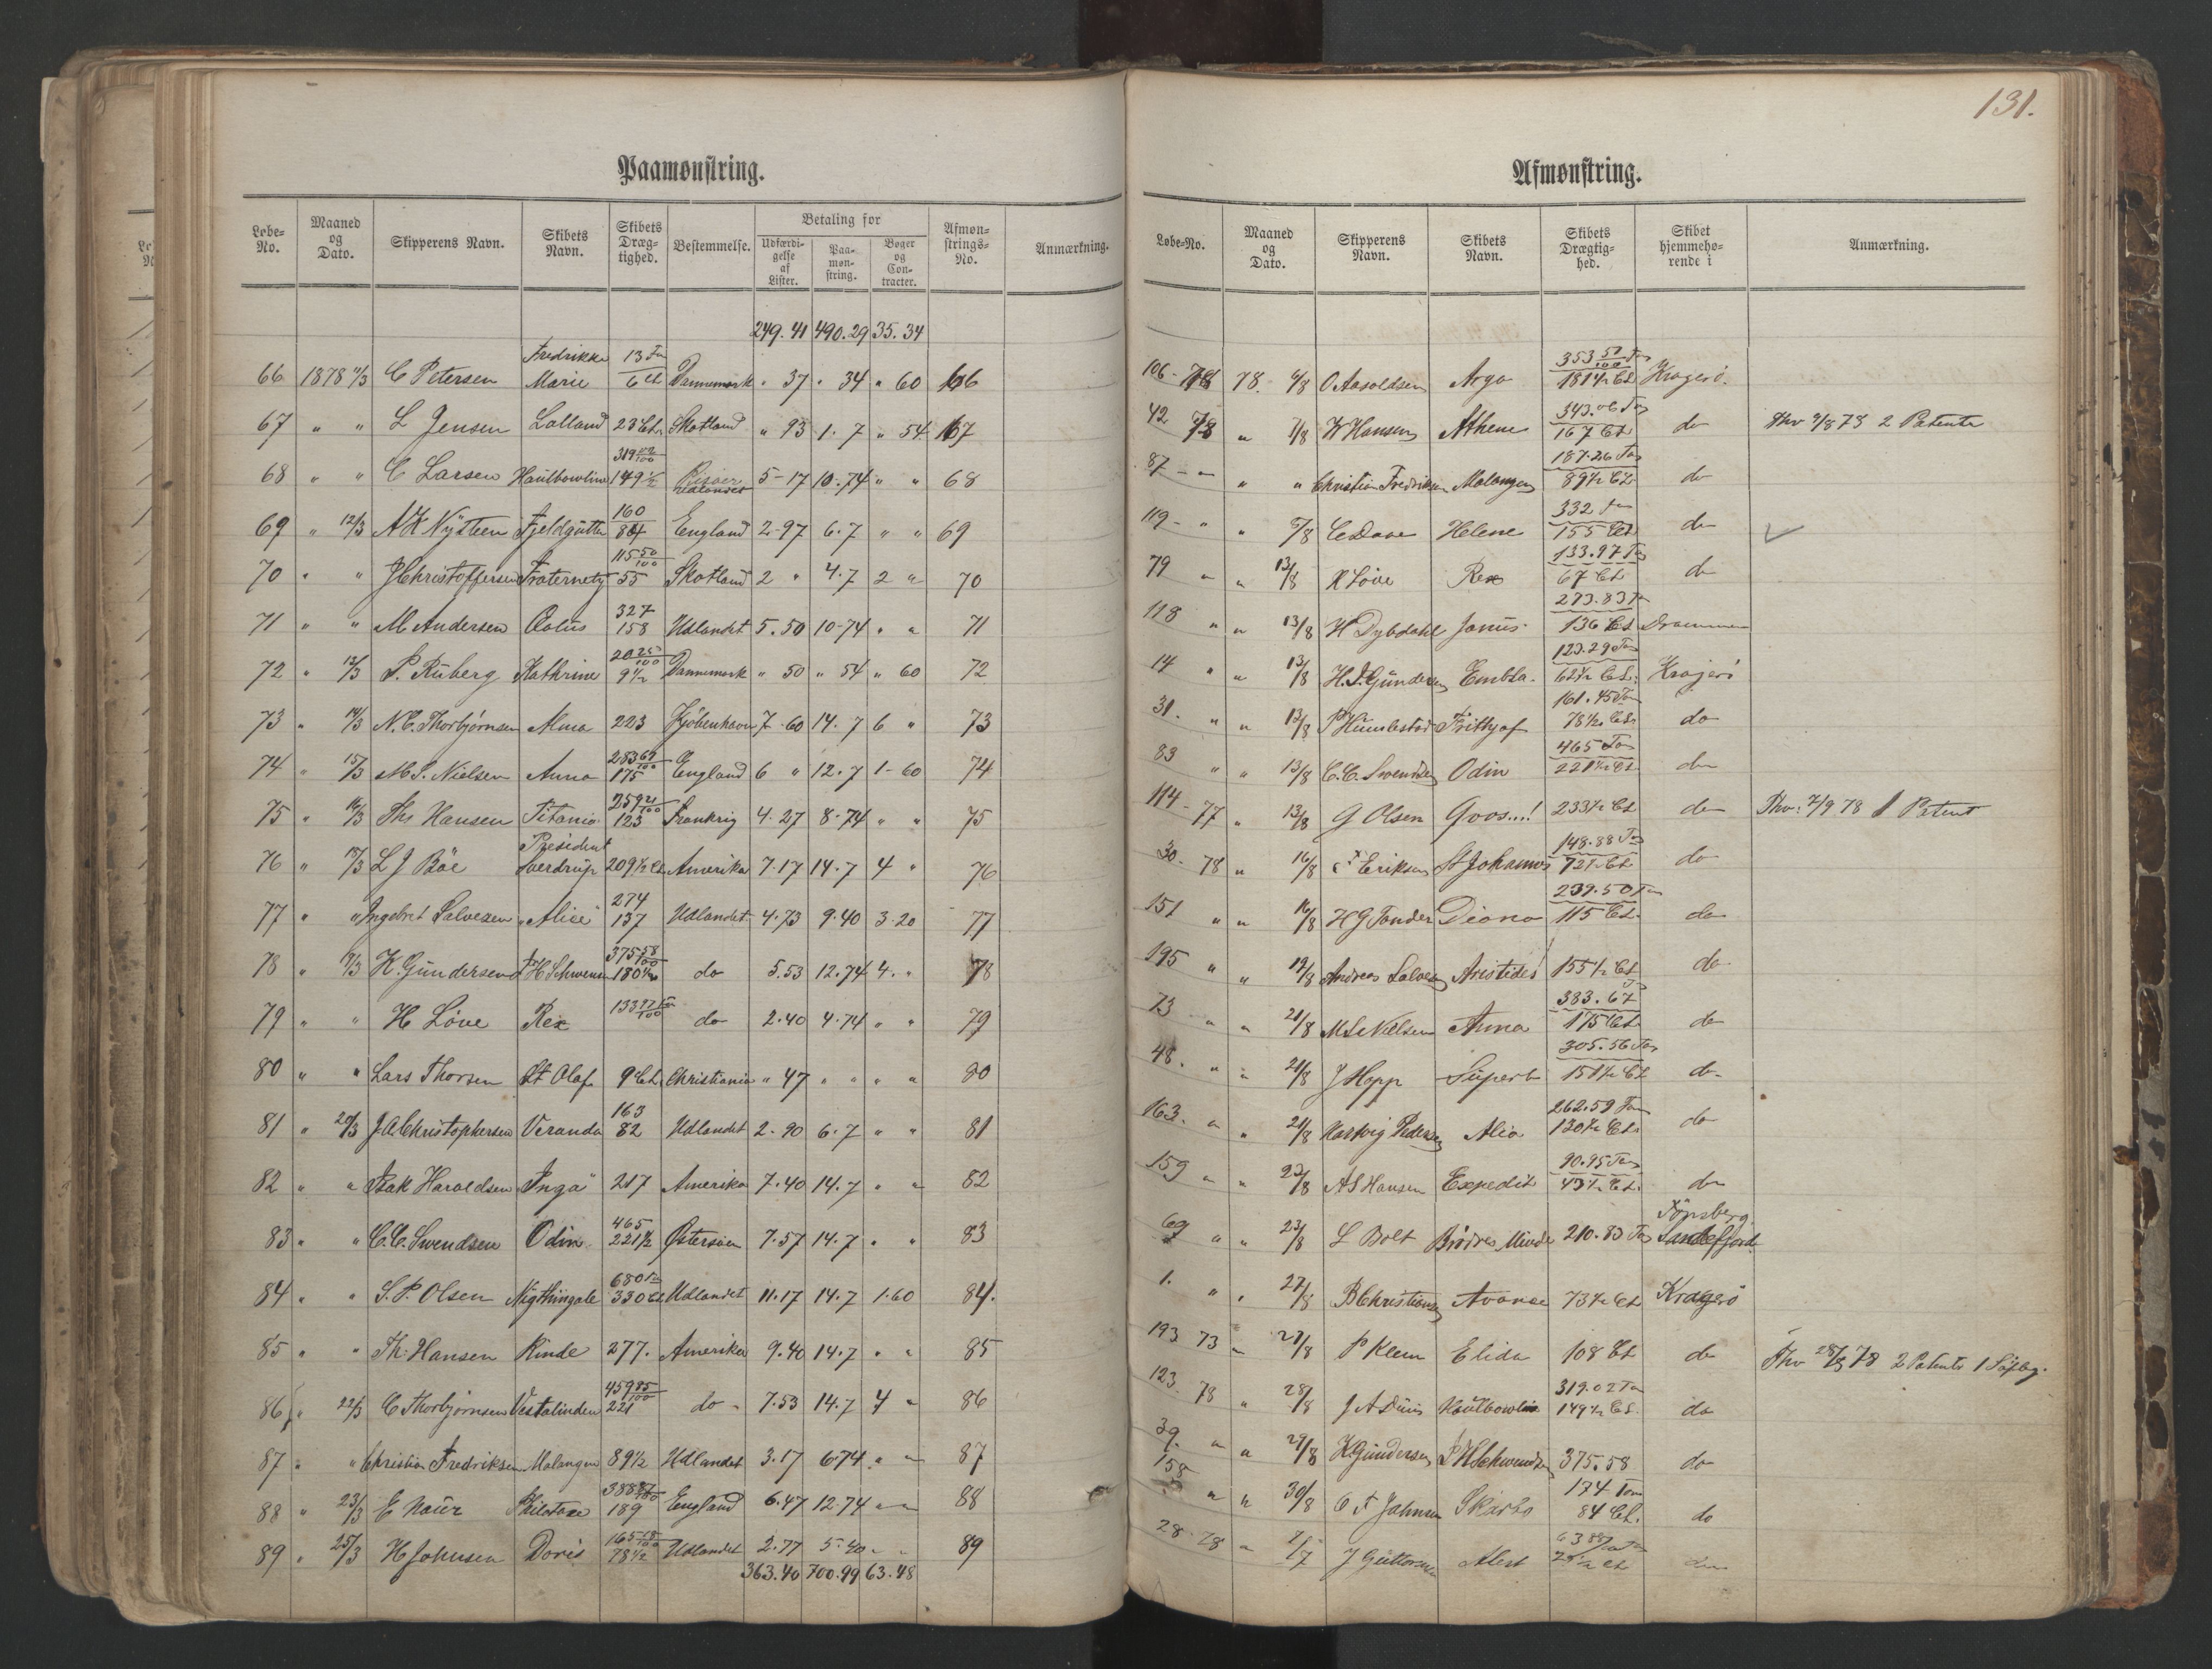 131.
Paamønstring.
Løbe-No. Maaned og Dato. Skipperens Navn. Skibets Navn. Skibets Dræg-tighed. Bestemmelse. Betaling for Udfærdi-gelse af Lister. Paa-møn-string. Bøger og Con-tracter. Afmøn-strings-No. Anmærkning.
249.41 490.29 35.34
66 1878 11/3 C Petersen Fredrikke Marie 13 Tn 6 Cl Dannemark " 37 " 34 " 60 66
67 " " L Jensen Lolland 23 Cl. Skotland " 93 1.7 " 54 67
68 " " C Larsen Haulbowline 319 02/100 149 1/2 Udlandet 5-17 10.74 " " 68
69 " 12/3 A K Nysteen Fjeldgutten 160 84 England 2-97 6.7 " " 69
70 " " J Christoffersen Fraternety 115 50/100 55 Skotland 2 " 4.7 2 " 70
71 " " M Andersen Eolus 327 158 Udlandet 5.50 10-74 " " 71
72 " 13/3 P. Ruberg Kathrine 20 25/100 9 1/2 Dannemark " 50 " 54 " 60 72
73 " 14/3 N. C. Thorbjørnsen Alma 223 Kjøbenhavn 7-60 14.7 6 " 73
74 " 15/3 M S. Nielsen Anna 283 67/100 175 England 6 " 12.7 1-60 74
75 " 16/3 Ths Hansen Titania 259 21/100 123 Frankrig 4.27 8-74 " " 75
76 " 18/3 L J Böe Præsident Sverdrup 209 1/2 Cl Amerika 7.17 14.7 4 " 76
77 " " Ingebret Salvesen "Alice" 274 137 Udlandet 4.73 9.40 3.20 77
78 " 19/3 K. Gundersen P H Schwensen 375 58/100 180 1/2 do 5.53 12.74 4. " 78
79 " " H Löve Rex 133 97/100 Tn do 2.40 4.74 " " 79
80 " " Lars Thorsen St Olaf 9 Cl. Christiania " 47 " " " " 80
81 " 20/3 J A Christophersen Veranda 163 82 Udlandet 2-90 6.7 " " 81
82 " " Isak Haraldsen "Inga" 217 Amerika 7.40 14.7 " " 82
83 " " C. C. Swendsen Odin 465 221 1/2 Østersöen 7.57 14.7 " " 83
84 " " S. P. Olsen Nigthingale 680 Tn 330 Cl Udlandet 11.17 14.7 1.60 84.
85 " " Th. Hansen Rinde 277. Amerika 9.40 14.7 " " 85
86 " 22/3 C Thorbjørnsen Vestalinden 459 85/100 221 do 7.53 14.7 4 " 86
87 " " Christian Fredriksen Malangen 89 1/2 Udlandet 3.17 6.74 " " 87
88 " 23/3 189 England 6.47 12.74 " " 88
89 " 25/3 H Johnsen Doris 78 1/2 Udlandet 2.77 5.40 " " 89
363.40 700.99 63.48
Afmønstring.
Løbe-No. Maaned og Dato. Skipperens Navn. Skibets Navn. Skibets Drægtig-hed. Skibet hjemmehø-rende i Anmærkning.
106-78 78. 6/8 O Aasoldsen Argo 353 50/100 Tn 181 1/2 Cl Kragerö.
42 78 " 7/8 K Hansen Athene 343.06 Tn 167 Cl do Thv 9/8 78 2 Patenter
87 - " " " Christian Fredriksen Malangen 187.26 Tns 89 1/2 Cl do
119 - " " 7/8 C Dave Helene 332 Tn 155 Cl do
79 " " 13/8 H Löve Rex 133.97 Tn 67 Cl do
118 " " 13/8 H Dybdahl Janus 273.83 Tn 136 Cl Drammen
14 " " 13/8 H. J. Gundersen Embla. 123.29 Tns 62 1/2 Cl. Kragerö
31. " " 13/8 P Humlestad Frithjof 161.45 Tn 78 1/2 Cl. do
83 " " 13/8 C. C. Swendsen Odin 465 Tn 221 1/2 Cl do
114-77 " 13/8 G Olsen Goos...! 233 1/2 Cl do Thv: 7/9 78 1 Patent
30-78 " 16/8 Eriksen St Johannes 148.88 Tn 72 1/2 Cl do
151 " " 16/8 H G Tander Diana 239.50 Tn 115 Cl. do
195 " " 19/8 Andreas Salvesen Aristides 155 1/2 Cl do
73 " " 21/8 M S Nielsen Anna 383.67 175 Cl. do
48. " " 21/8 J Hopp Superb 305.56 Tn 151 1/2 Cl do
163. " " 21/8 Hartvig Pedersen Alia 262.59 Tn 130 1/2 Cl. do
159 " " 22/8 A S Hansen Expedit 90.95 Tn 43 1/2 Cl. do
69 " " 23/8 L Bolt Brödres Minde 210.83 Tn Sandefjord
1. " " 27/8 B Christiansen Avance 73 1/2 Cl. Kragerö
193 73 " 27/8 P Klem Elida 108 Cl do Thv 28/8 78 2 Patenter
123. 78 " 28/8 J A Duus Haulbowline 319.02 Tn 149 1/2 Cl. do
39. " " 29/8 K Gundersen P H Schwendsen 375.58 do
158 " " 30/8 O T Jahnsen 174 Tons 84 Cl. do
28-78 " J Guttormsen Alert